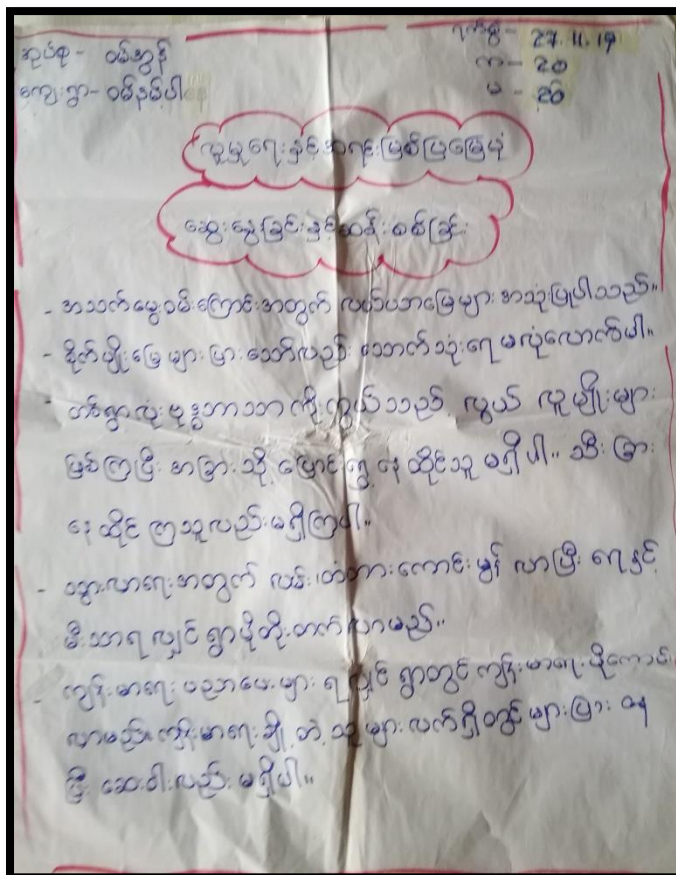 အုပ်စု - ဝမ်အွန် ရက်စွဲ - 27.11.19
ကျေးရွာ - ဝမ်နမ်ပါ ကျ - 20
မ - 20
လူမှုရေးနှင့်အရင်းမြစ်ပြမြေပုံ
ဆွေးနွေးခြင်းနှင့်ဆန်းစစ်ခြင်း
- အသက်မွေးဝမ်းကြောင်းအတွက် လယ်ယာမြေများ အသုံးပြုပါသည်။
- စိုက်ပျိုးမြေ များပြားသော်လည်း သောက်သုံးရေ မလုံလောက်ပါ။
- တစ်ရွာလုံး ဗုဒ္ဓဘာသာ ကိုးကွယ်သည့် လွယ် လူမျိုးများ
ဖြစ်ကြပြီး အခြားသို့ ပြောင်းရွှေ့ နေထိုင်သူ မရှိပါ။ သီးခြား
နေထိုင် ကြသူလည်းမရှိကြပါ။
- သွားလာရေးအတွက် လမ်းတံတားကောင်းမွန် လာပြီး ရေနှင့်
မီးသာရလျှင် ရွာပိုတိုးတက်လာမည်။
- ကျန်းမာရေး ပညာပေးများ ရလျှင် ရွာတွင် ကျန်းမာရေး ပိုကောင်း
လာမည်။ ကျန်းမာရေး ချို့တဲ့ သူများ လက်ရှိတွင် များပြား နေ
ပြီး ဆေးဝါးလည်း မရှိပါ။